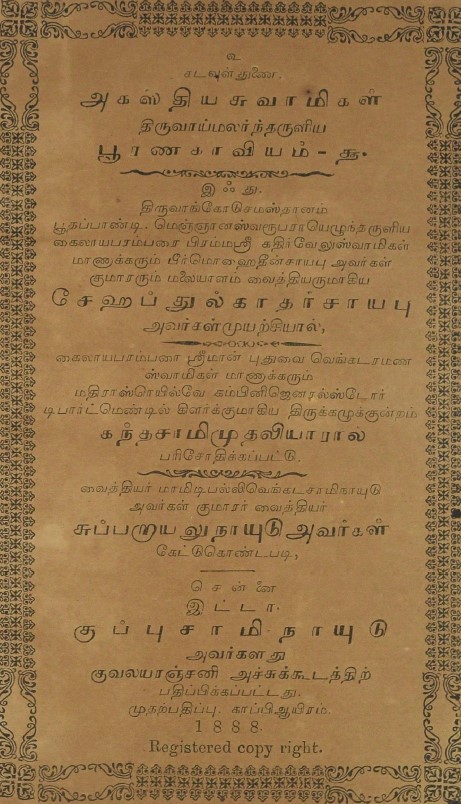 உ
கடவுள்துணை.
அகஸ்தியசுவாமிகள்
திருவாய்மலர்ந்தருளிய
பூரணகாவியம் - த.
இஃது.
திருவாங்கோடுசமஸ்தானம்
பூதப்பாண்டி. மெஞ்ஞானஸ்வரூபராயெழுந்தருளிய
கைலாயபரம்பரை பிரம்மஸ்ரீ கதிர்வேலுஸ்வாமிகள்
மாணாக்கரும் பீர்மொஹைதீன்சாயபு அவர்கள்
குமாரரும் மலையாளம் வைத்தியருமாகிய
சேஹப்துல்காதர்சாயபு
அவர்கள்முயற்சியால்,
கைலாயபரம்பரை ஸ்ரீமான் புதுவை வெங்கடரமண
ஸ்வாமிகள் மாணாக்கரும்
மதிராஸ்ரெயில்வே கம்பினிஜெனரல்ஸ்டோர்
டிபார்ட்மெண்டில் கிளர்க்குமாகிய திருக்கழுக்குன்றம்
கந்தசாமிமுதலியாரால்
பரிசோதிக்கப்பட்டு,
வைத்தியர் மாமிடிபல்லிவெங்கடசாமிநாயுடு
அவர்கள் குமாரர் வைத்தியர்
சுப்பறாயலுநாயுடு அவர்கள்
கேட்டுகொண்டபடி,
சென்னை
இட்டா.
குப்புசாமிநாயுடு
அவர்களது
குவலயாஞ்சனி அச்சுக்கூடத்திற்
பதிப்பிக்கப்பட்டது.
முதற்பதிப்பு. காப்பிஆயிரம்.
1888.
Registered copy right.